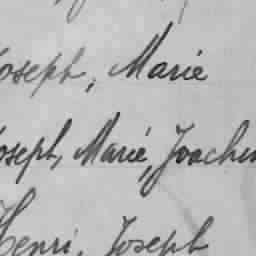 Joseph, Marie
Joseph, Marie, Joachim
Henri, Joseph